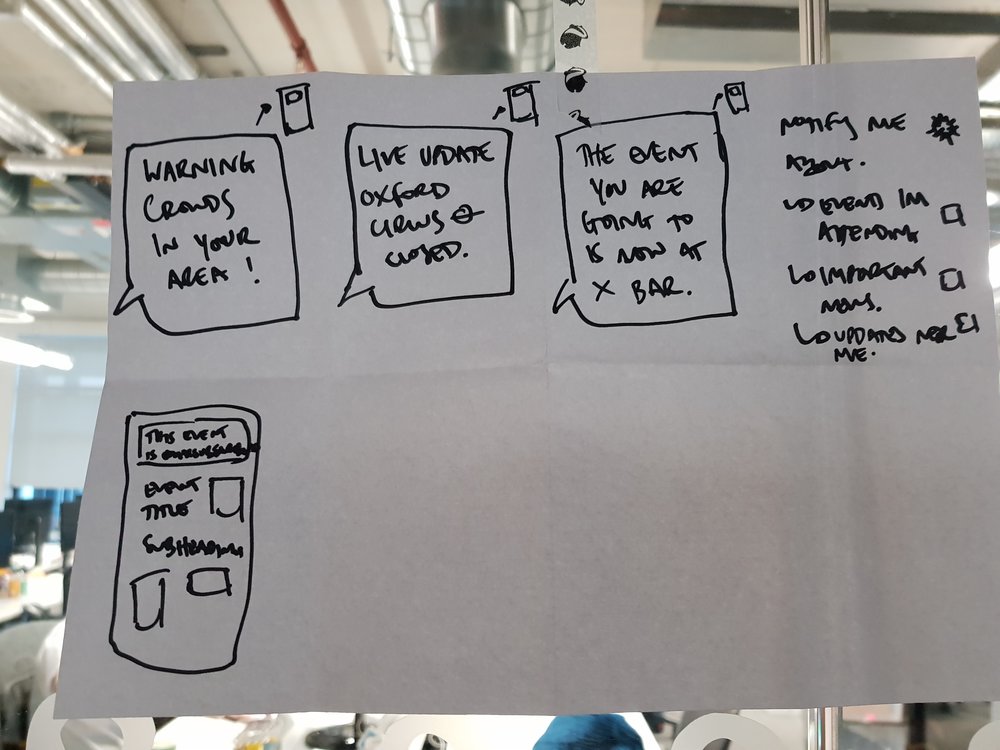 WARNING
CROWDS
IN YOUR
AREA!
LIVE UPDATE
OXFORD
CIRCUS
CLOSED.
THE EVENT
YOU ARE
GOING TO
IS NOW AT
X BAR.
NOTIFY ME
ABOUT.
EVENT IM
ATTENDING
IMPORTANT
NEWS.
UPDATES NEAR
ME.
THIS EVENT
IS OVERSUBSCRIBED
EVENT
TITLE
SUBHEADING